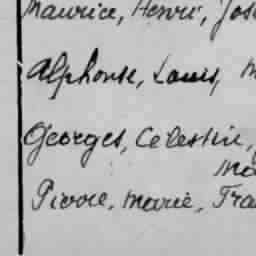 Maurice, Henri, Jos
Alphonse, Louis, M
Georges, Célestin,
Ma
Pierre, Marie, Fra